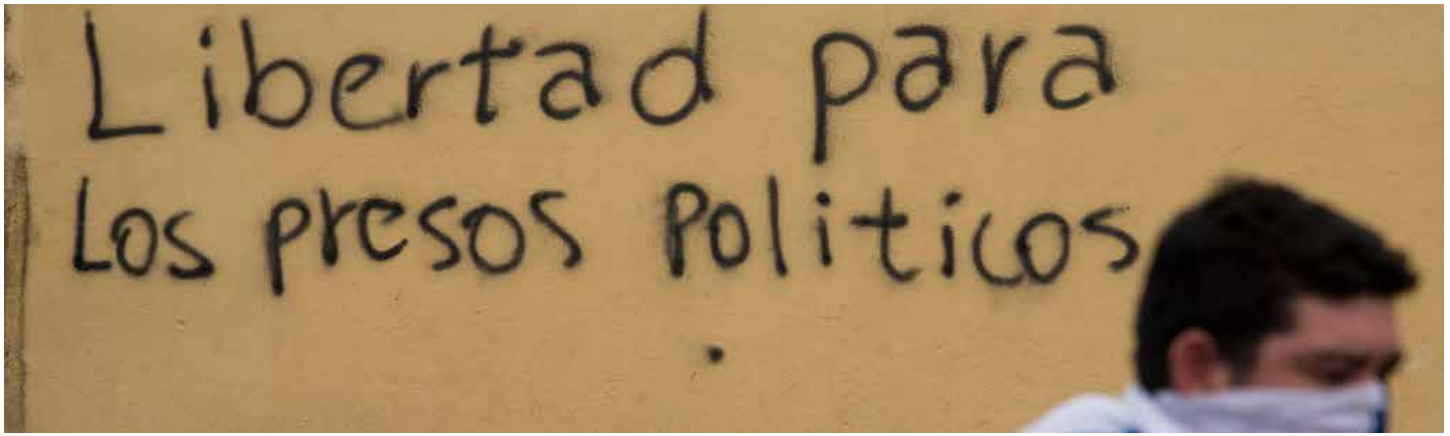 Libertad para
Los presos Politicos
.